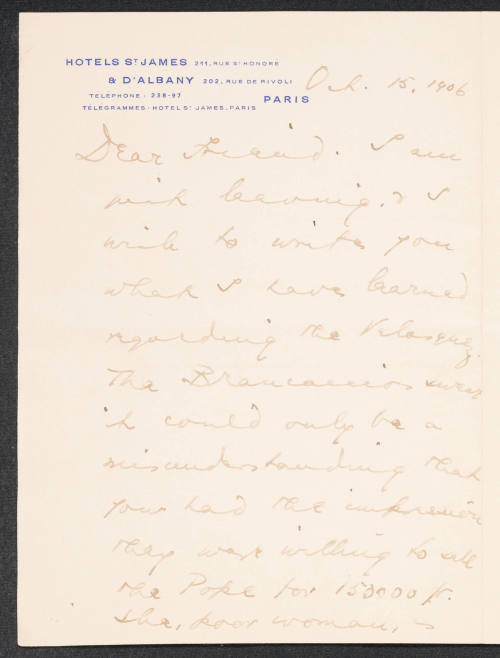 HOTELS ST JAMES 211, RUE ST HONORE
& D'ALBANY 202, RUE DE RIVOLI
TELEPHONE · 238-97 PARIS
TELEGRAMMES · HOTEL ST JAMES · PARIS
Oct. 15, 1906
Dear Friend. I am
just leaving. & I
wish to write you
what I have learned
regarding the Velasquez.
The Brancaccios swear
it could only be a
misunderstanding that
you had the impression
they were willing to sell
the Pope for 150000 fr.
She, poor woman, is